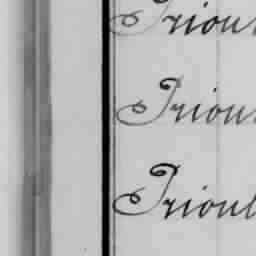 Trioul
Trioul
Trioul